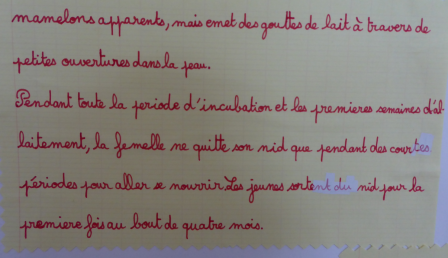 mamelons apparents, mais emet des gouttes de lait à travers de
petites ouvertures dans la peau.
Pendant toute la periode d'incubation et les premieres semaines d'al-
laitement, la femelle ne quitte son nid que pendant des courtes
périodes pour aller se nourrir. Les jeunes sortent du nid pour la
premiere fois au bout de quatre mois.